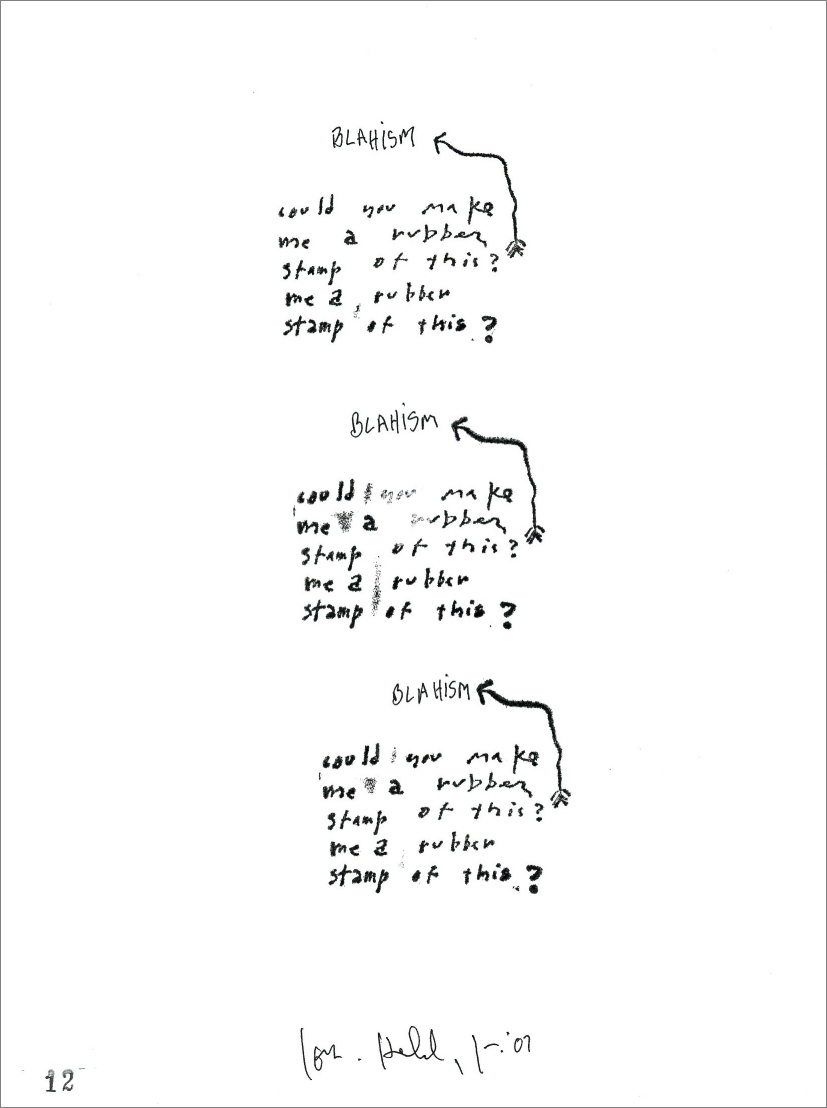 BLAHiSM
could you make
me a rubber
stamp of this?
me a rubber
stamp of this ?
BLAHiSM
could you make
me a rubber
stamp of this?
me a rubber
stamp of this ?
BLAHiSM
could you make
me a rubber
stamp of this?
me a rubber
stamp of this ?
Held, Jr. '07
12